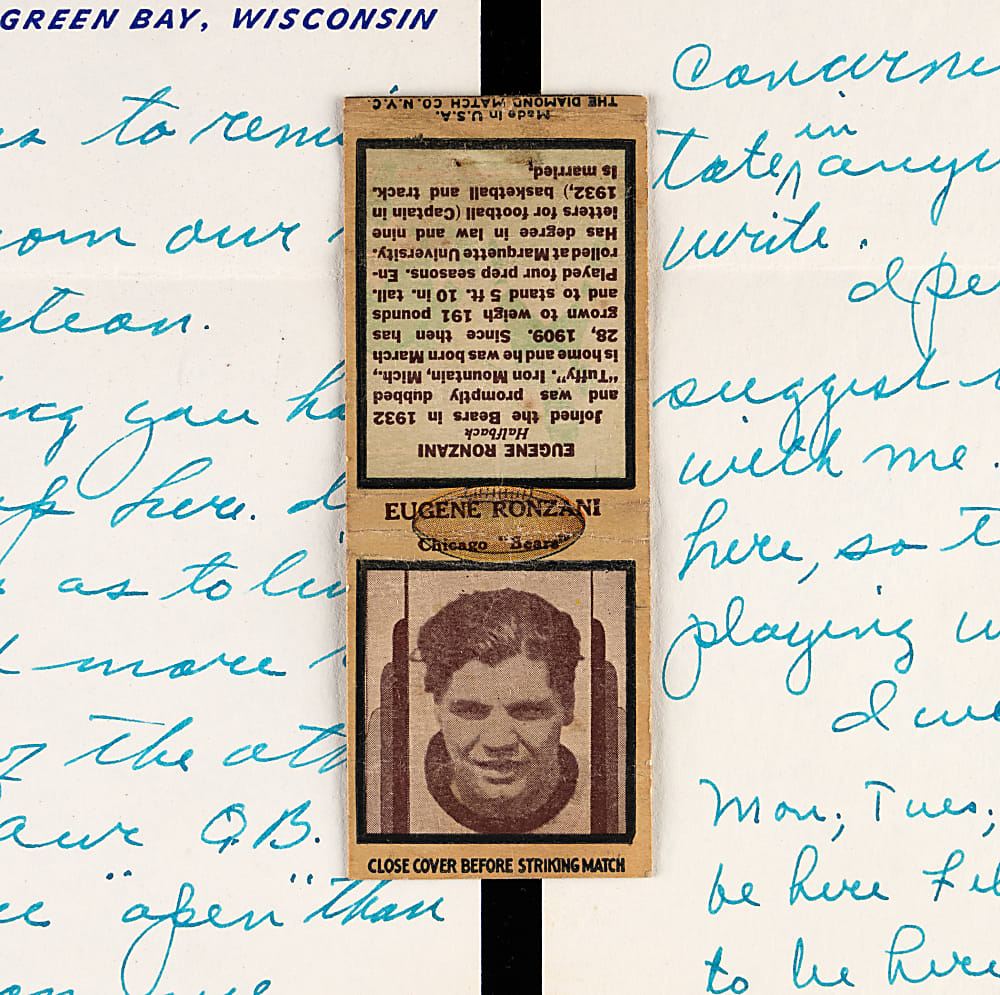 GREEN BAY, WISCONSIN
to
our
you
here.
as to
more
of the
Q.B.
"open" than
me
THE DIAMOND MATCH CO. N.Y.C.
Made in U.S.A.
EUGENE RONZANI
Halfback
Joined the Bears in 1932
and was promptly dubbed
"Tuffy". Iron Mountain, Mich.,
is home and he was born March
28, 1909. Since then has
grown to weigh 191 pounds
and to stand 5 ft. 10 in. tall.
Played four prep seasons. En-
rolled at Marquette University.
Has degree in law and nine
letters for football (Captain in
1932,) basketball and track.
Is married.
EUGENE RONZANI
Chicago "Bears"
CLOSE COVER BEFORE STRIKING MATCH
in
write.
suggest
with me.
here, so
playing
I
Mon; Tues;
be here
to be here